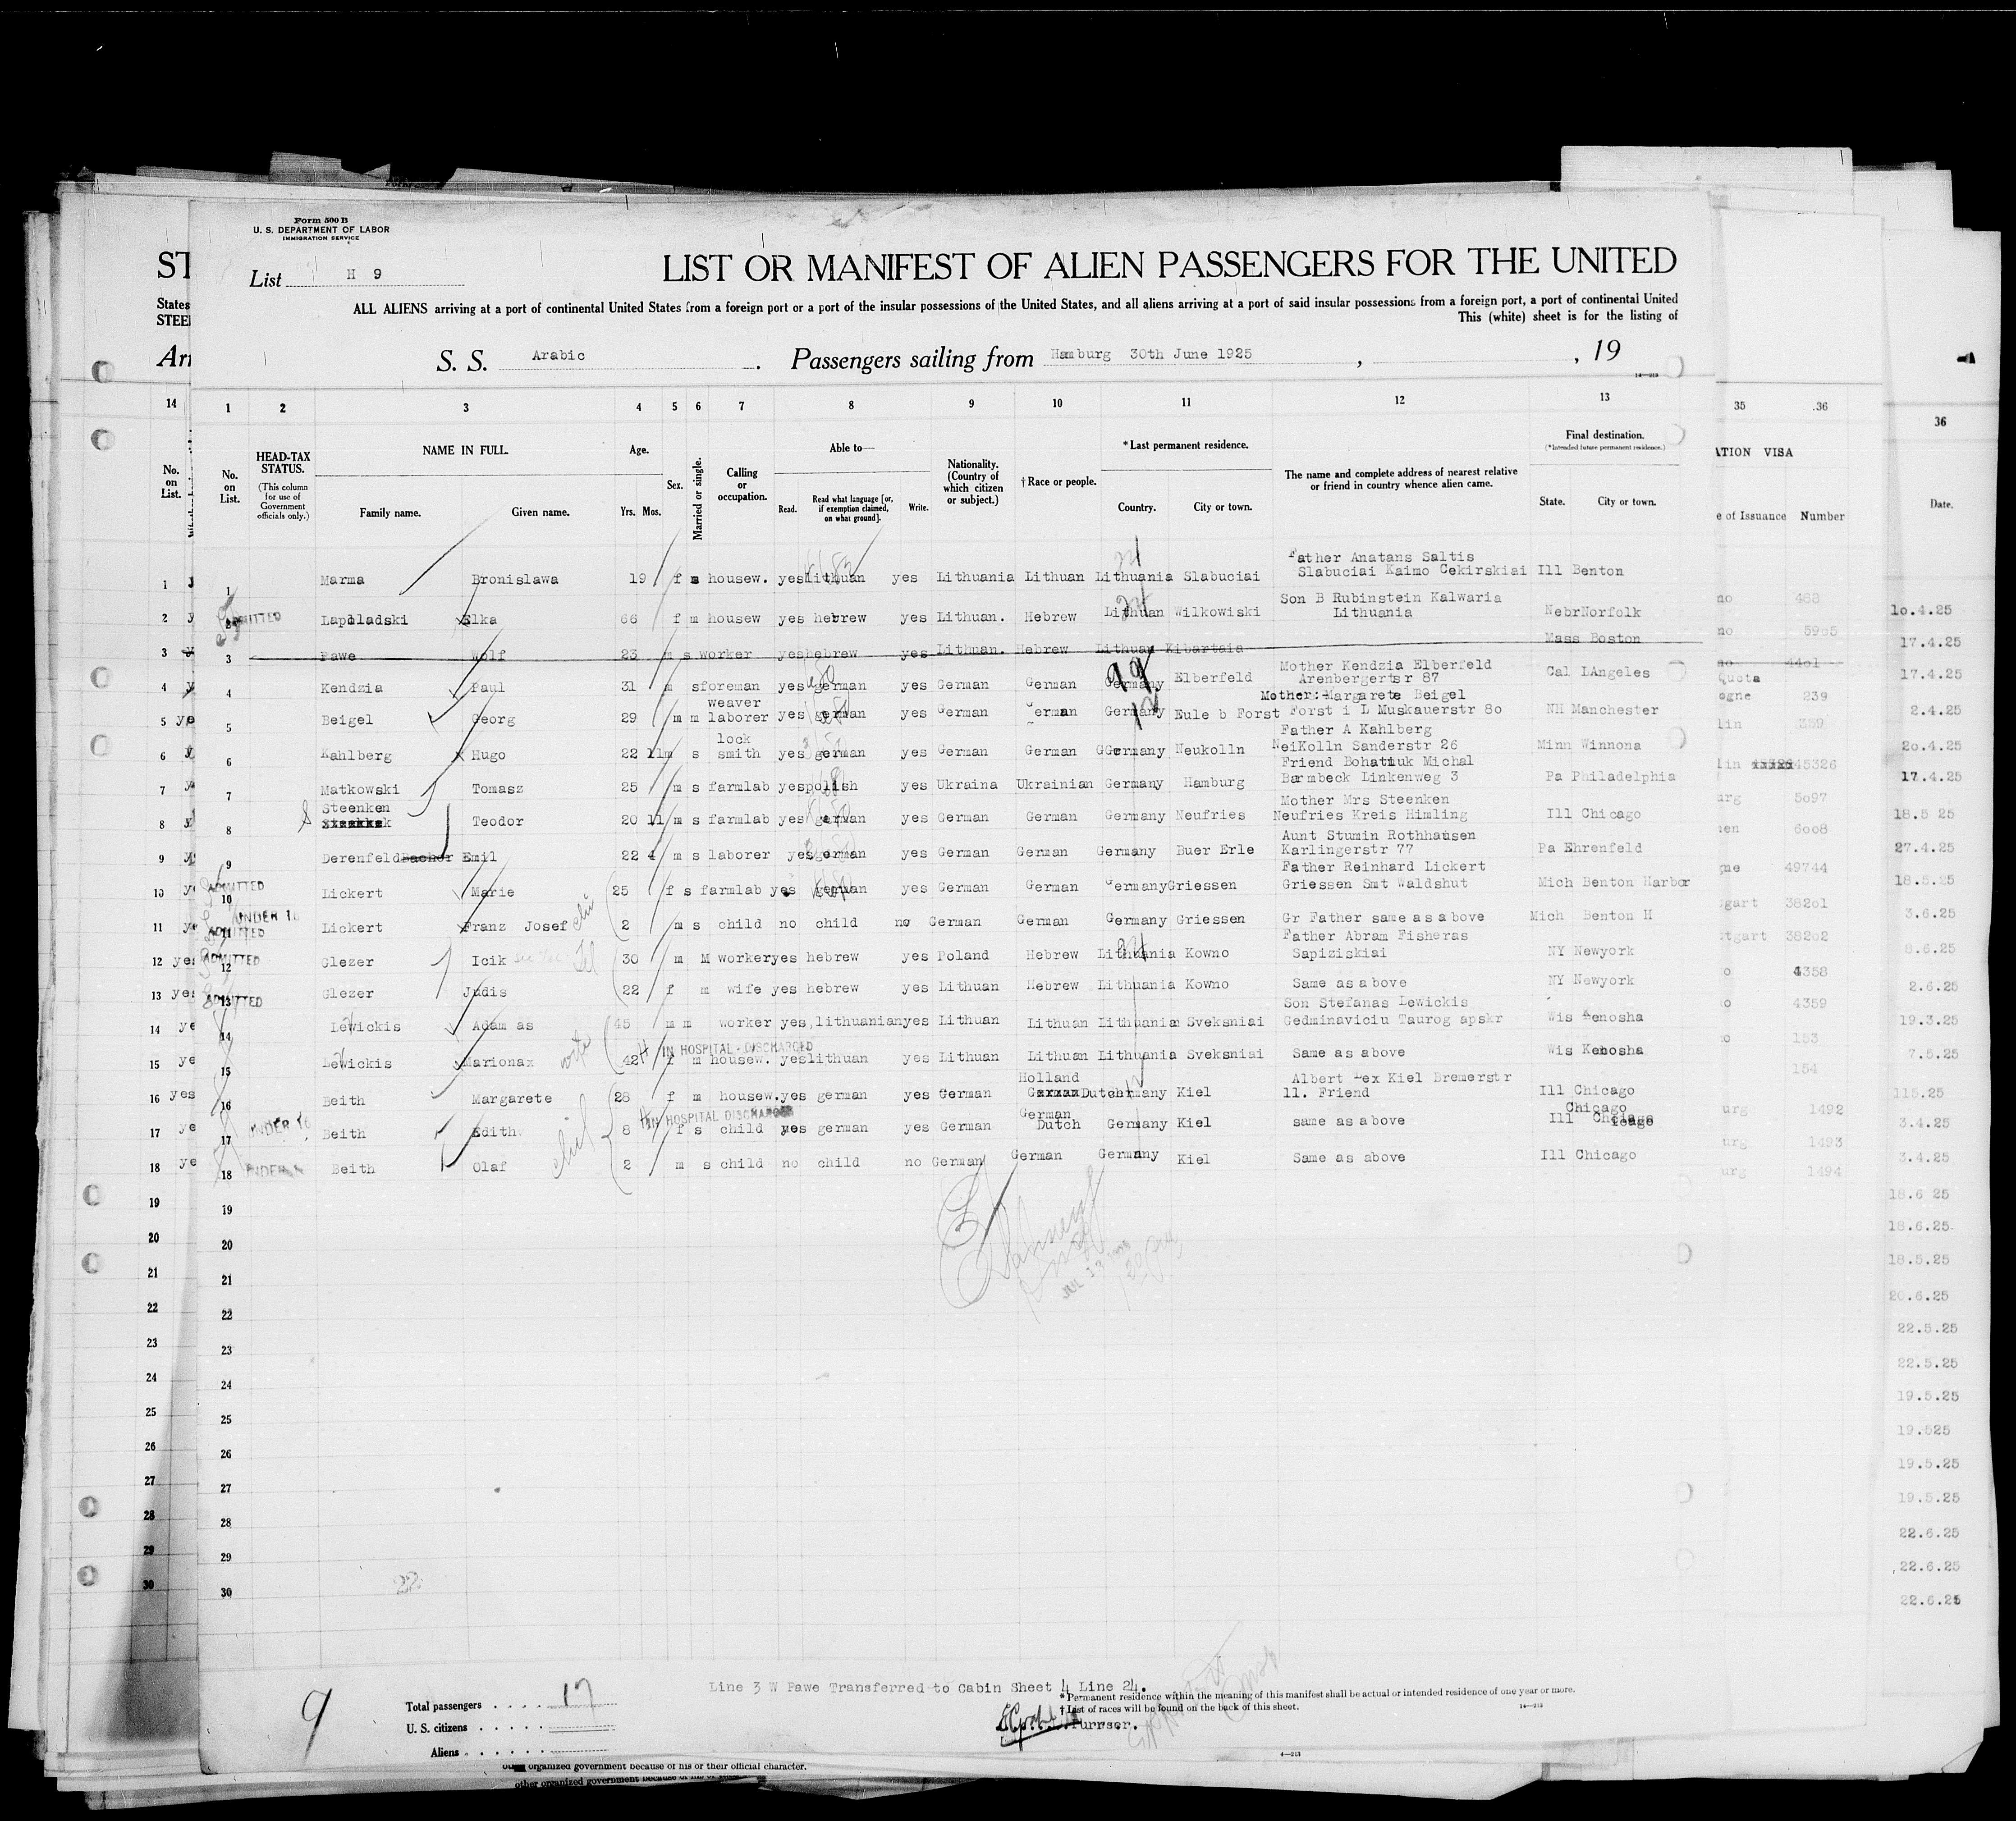 Form 500 B
U. S. DEPARTMENT OF LABOR
IMMIGRATION SERVICE
List H 9
LIST OR MANIFEST OF ALIEN PASSENGERS FOR THE UNITED
ALL ALIENS arriving at a port of continental United States from a foreign port or a port of the insular possessions of the United States, and all aliens arriving at a port of said insular possessions from a foreign port, a port of continental United
This (white) sheet is for the listing of
S. S. Arabic . Passengers sailing from Hamburg 30th June 1925 , , 19
1 2 3 4 5 6 7 8 9 10 11 12 13
No. on List.
HEAD-TAX STATUS.
(This column for use of Government officials only.)
NAME IN FULL.
Family name. Given name.
Age.
Yrs. Mos.
Sex.
Married or single.
Calling or occupation.
Able to—
Read. Read what language [or, if exemption claimed, on what ground]. Write.
Nationality. (Country of which citizen or subject.)
† Race or people.
* Last permanent residence.
Country. City or town.
The name and complete address of nearest relative or friend in country whence alien came.
Final destination.
(*Intended future permanent residence.)
State. City or town.
Father Anatans Saltis
1 Marma Bronislawa 19 f m housew. yes lithuan yes Lithuania Lithuan Lithuania Slabuciai Slabuciai Kaimo Cekirskiai Ill Benton
Son B Rubinstein Kalwaria
2 ADMITTED Lapolladski Elka 66 f m housew yes hebrew yes Lithuan. Hebrew Lithuan Wilkowiski Lithuania Nebr Norfolk
3 Pawe Wolf 23 m s worker yes hebrew yes Lithuan. Hebrew Lithuan Kibartaia Mass Boston
Mother Kendzia Elberfeld
4 Kendzia Paul 31 m s foreman yes german yes German German Germany Elberfeld Arenbergertsr 87 Cal LAngeles
weaver Mother:-Margarete Beigel
5 Beigel Georg 29 m m laborer yes german yes German German Germany Eule b Forst Forst i L Muskauerstr 80 NH Manchester
lock Father A Kahlberg
6 Kahlberg Hugo 22 11 m s smith yes german yes German German GGermany Neukolln NeiKolln Sanderstr 26 Minn Winnona
Friend Bohatiuk Michal
7 Matkowski Tomasz 25 m s farmlab yes polish yes Ukraina Ukrainian Germany Hamburg Barmbeck Linkenweg 3 Pa Philadelphia
Steenken Mother Mrs Steenken
8 Teodor 20 11 m s farmlab yes german yes German German Germany Neufries Neufries Kreis Himling Ill Chicago
Aunt Stumin Rothhausen
9 Derenfeld Bacher Emil 22 4 m s laborer yes german yes German German Germany Buer Erle Karlingerstr 77 Pa Ehrenfeld
Father Reinhard Lickert
10 ADMITTED Lickert Marie 25 f s farmlab yes german yes German German Germany Griessen Griessen Smt Waldshut Mich Benton Harbor
11 UNDER 16 ADMITTED Lickert Franz Josef 2 m s child no child no German German Germany Griessen Gr Father same as above Mich Benton H
Father Abram Fisheras
12 ADMITTED Glezer Icik 30 m M worker yes hebrew yes Poland Hebrew Lithuania Kowno Sapiziskiai NY Newyork
13 ADMITTED Glezer Judis 22 f m wife yes hebrew yes Lithuan Hebrew Lithuania Kowno Same as above NY Newyork
Son Stefanas Lewickis
14 Lewickis Adam as 45 m m worker yes, lithuanian yes Lithuan Lithuan Lithuania Sveksniai Gedminaviciu Taurog apskr Wis Kenosha
IN HOSPITAL - DISCHARGED
15 Lewickis Marionax wife 42 f m housew. yes lithuan yes Lithuan Lithuan Lithuania Sveksniai Same as above Wis Kenosha
Holland Albert Lex Kiel Bremerstr
16 Beith Margarete 28 f m housew. yes german yes German German Dutch Germany Kiel 11. Friend Ill Chicago
IN HOSPITAL DISCHARGED German Chicago
17 UNDER 16 Beith Edith 8 f s child yes german yes German Dutch Germany Kiel same as above Ill
18 UNDER 16 Beith Olaf 2 m s child no child no German German Germany Kiel Same as above Ill Chicago
19
20
21
22
23
24
25
26
27
28
29
30
22
Line 3 W Pawe Transferred to Cabin Sheet 4 Line 24.
9
Total passengers . . . . 17
U. S. citizens . . . . .
Aliens . . . . . .
* Permanent residence within the meaning of this manifest shall be actual or intended residence of one year or more.
† List of races will be found on the back of this sheet.
Purrser.
14—213
organized government because of his or their official character.
other organized government because of his
ST
States
STEE
Arr
14
No. on List.
35 36
ATION VISA
e of Issuance Number
no 488
no 5905
no 4401
Quota
ogne 239
lin 389
lin 45326
urg 5097
en 6008
gne 49744
gart 38201
tgart 38202
o 4358
o 4359
o 153
154
urg 1492
urg 1493
urg 1494
36
Date.
10.4.25
17.4.25
17.4.25
2.4.25
20.4.25
17.4.25
18.5 25
27.4.25
18.5.25
3.6.25
8.6.25
2.6.25
19.3.25
7.5.25
115.25
3.4.25
3.4.25
18.6 25
18.6.25
18.5.25
20.6.25
22.5.25
22.5.25
19.5.25
19.525
19.5.25
19.5.25
22.6.25
22.6.25
22.6.25